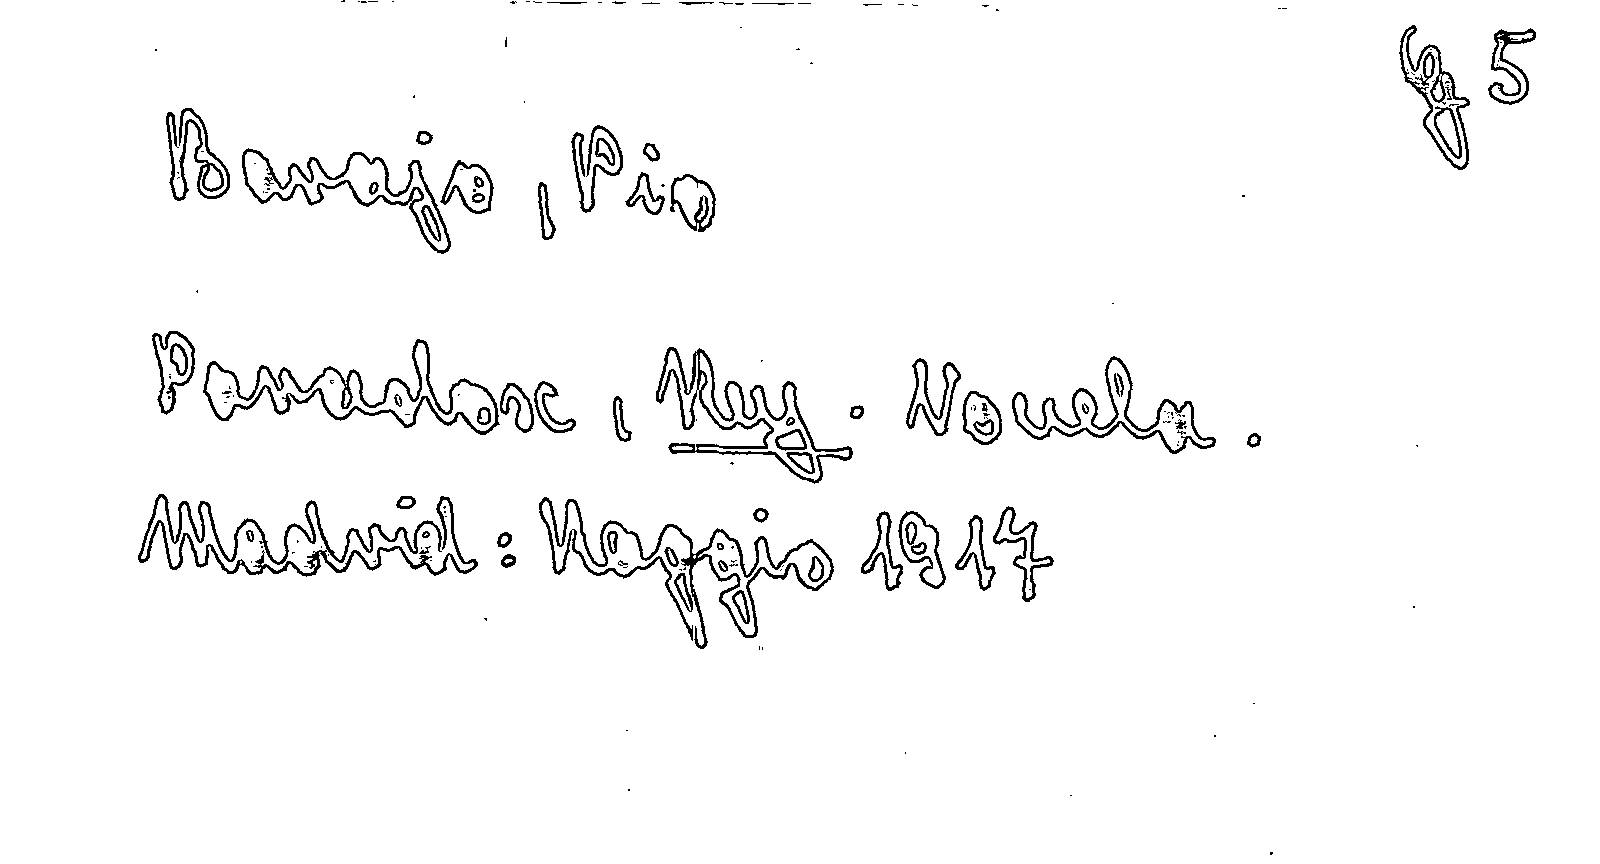 5
Baroja, Pio
Paradox, Rey. Novela.
Madrid: Raggio 1917